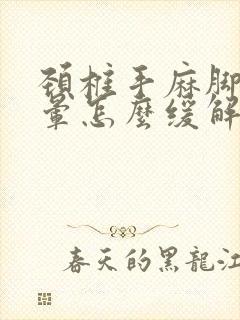 頸椎手麻脚
暈怎麼緩解
春天的黑龍江